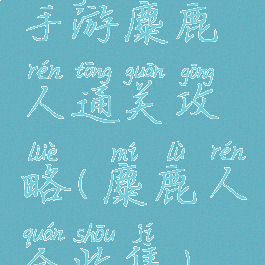 手游麋鹿
rén tōng guān gōng
人通关攻
lüè mí lù rén
略(麋鹿人
quán shōu jí
全收集)